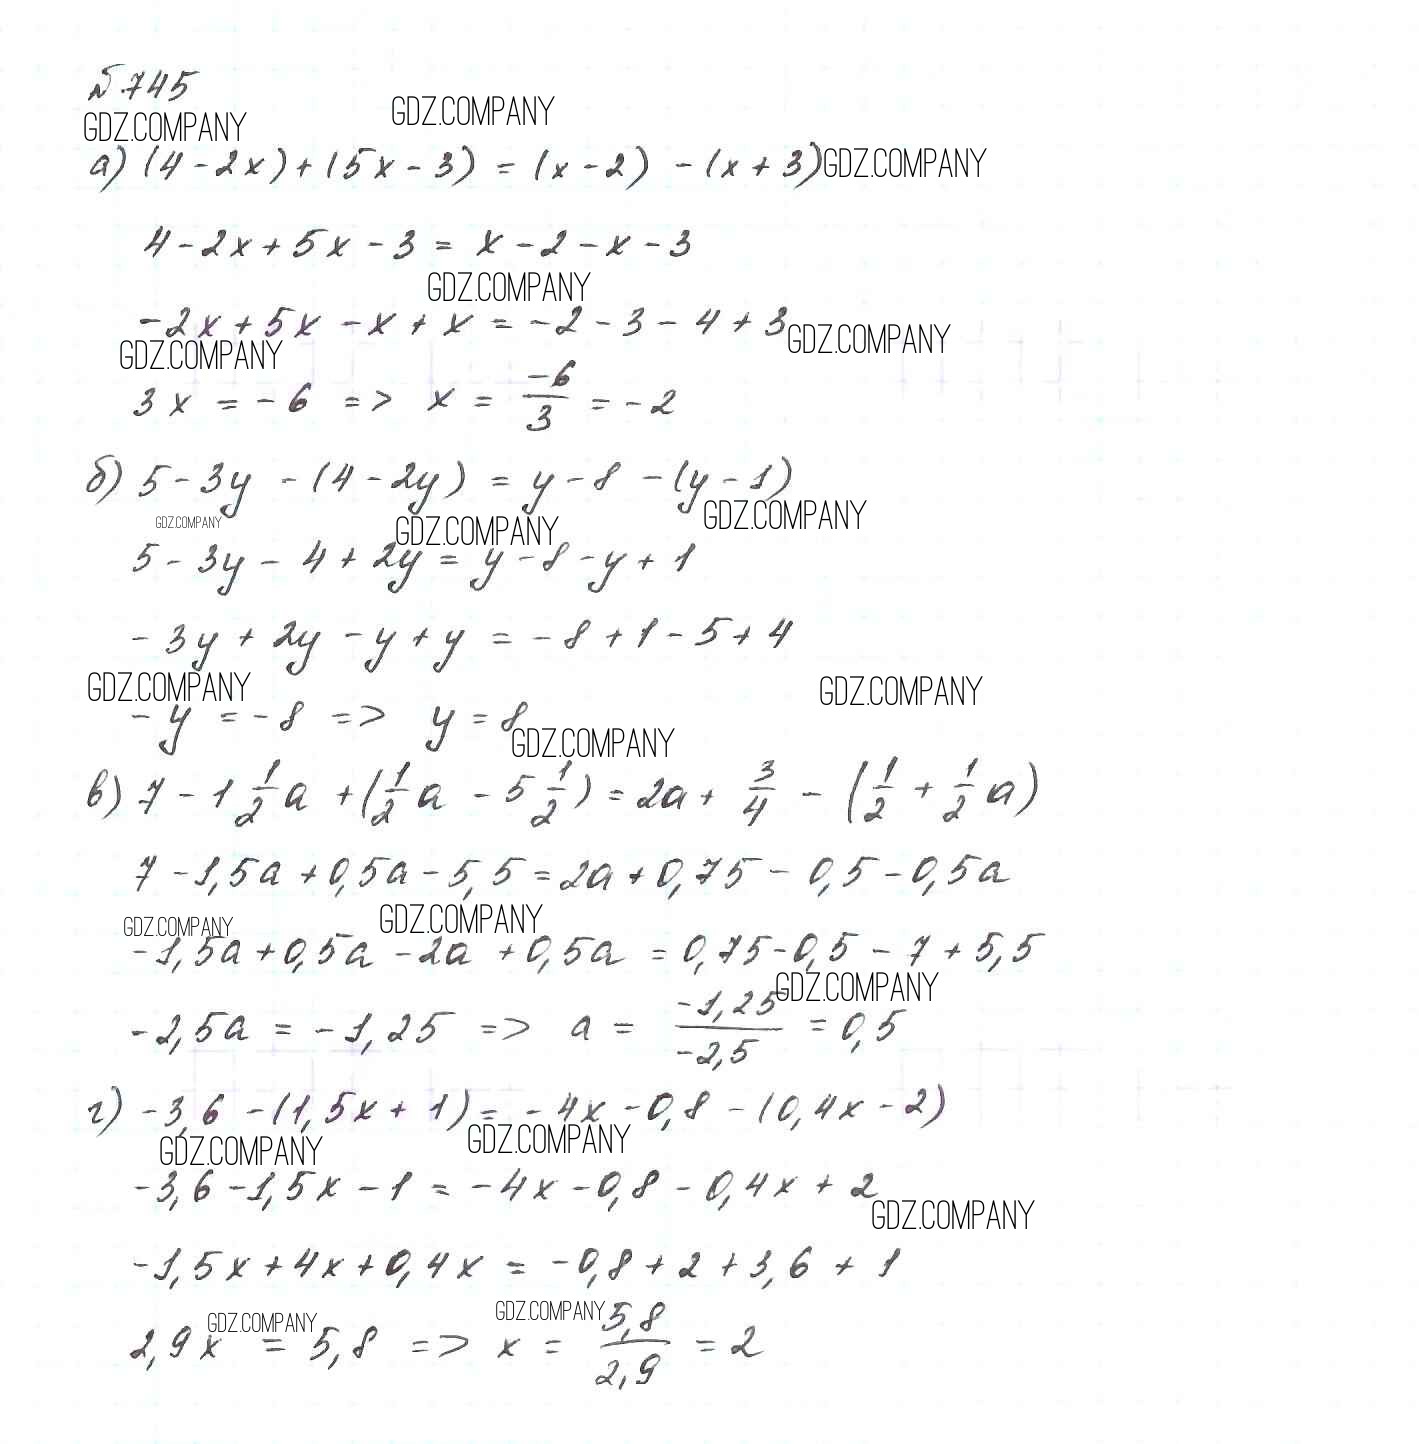 №745
GDZ.COMPANY
GDZ.COMPANY
а) (4 - 2x) + (5x - 3) = (x - 2) - (x + 3) GDZ.COMPANY
4 - 2x + 5x - 3 = x - 2 - x - 3
GDZ.COMPANY
-2x + 5x - x + x = -2 - 3 - 4 + 3
GDZ.COMPANY
GDZ.COMPANY
3x = -6 => x = -6/3 = -2
б) 5 - 3y - (4 - 2y) = y - 8 - (y - 1)
GDZ.COMPANY
GDZ.COMPANY
GDZ.COMPANY
5 - 3y - 4 + 2y = y - 8 - y + 1
-3y + 2y - y + y = -8 + 1 - 5 + 4
GDZ.COMPANY
GDZ.COMPANY
-y = -8 => y = 8
GDZ.COMPANY
в) 7 - 1 1/2 a + (1/2 a - 5 1/2) = 2a + 3/4 - (1/2 + 1/2 a)
7 - 1,5a + 0,5a - 5,5 = 2a + 0,75 - 0,5 - 0,5a
GDZ.COMPANY
GDZ.COMPANY
-1,5a + 0,5a - 2a + 0,5a = 0,75 - 0,5 - 7 + 5,5
GDZ.COMPANY
-2,5a = -1,25 => a = -1,25/-2,5 = 0,5
г) -3,6 - (1,5x + 1) = -4x - 0,8 - (0,4x - 2)
GDZ.COMPANY
GDZ.COMPANY
-3,6 - 1,5x - 1 = -4x - 0,8 - 0,4x + 2
GDZ.COMPANY
-1,5x + 4x + 0,4x = -0,8 + 2 + 3,6 + 1
GDZ.COMPANY
GDZ.COMPANY
2,9x = 5,8 => x = 5,8/2,9 = 2